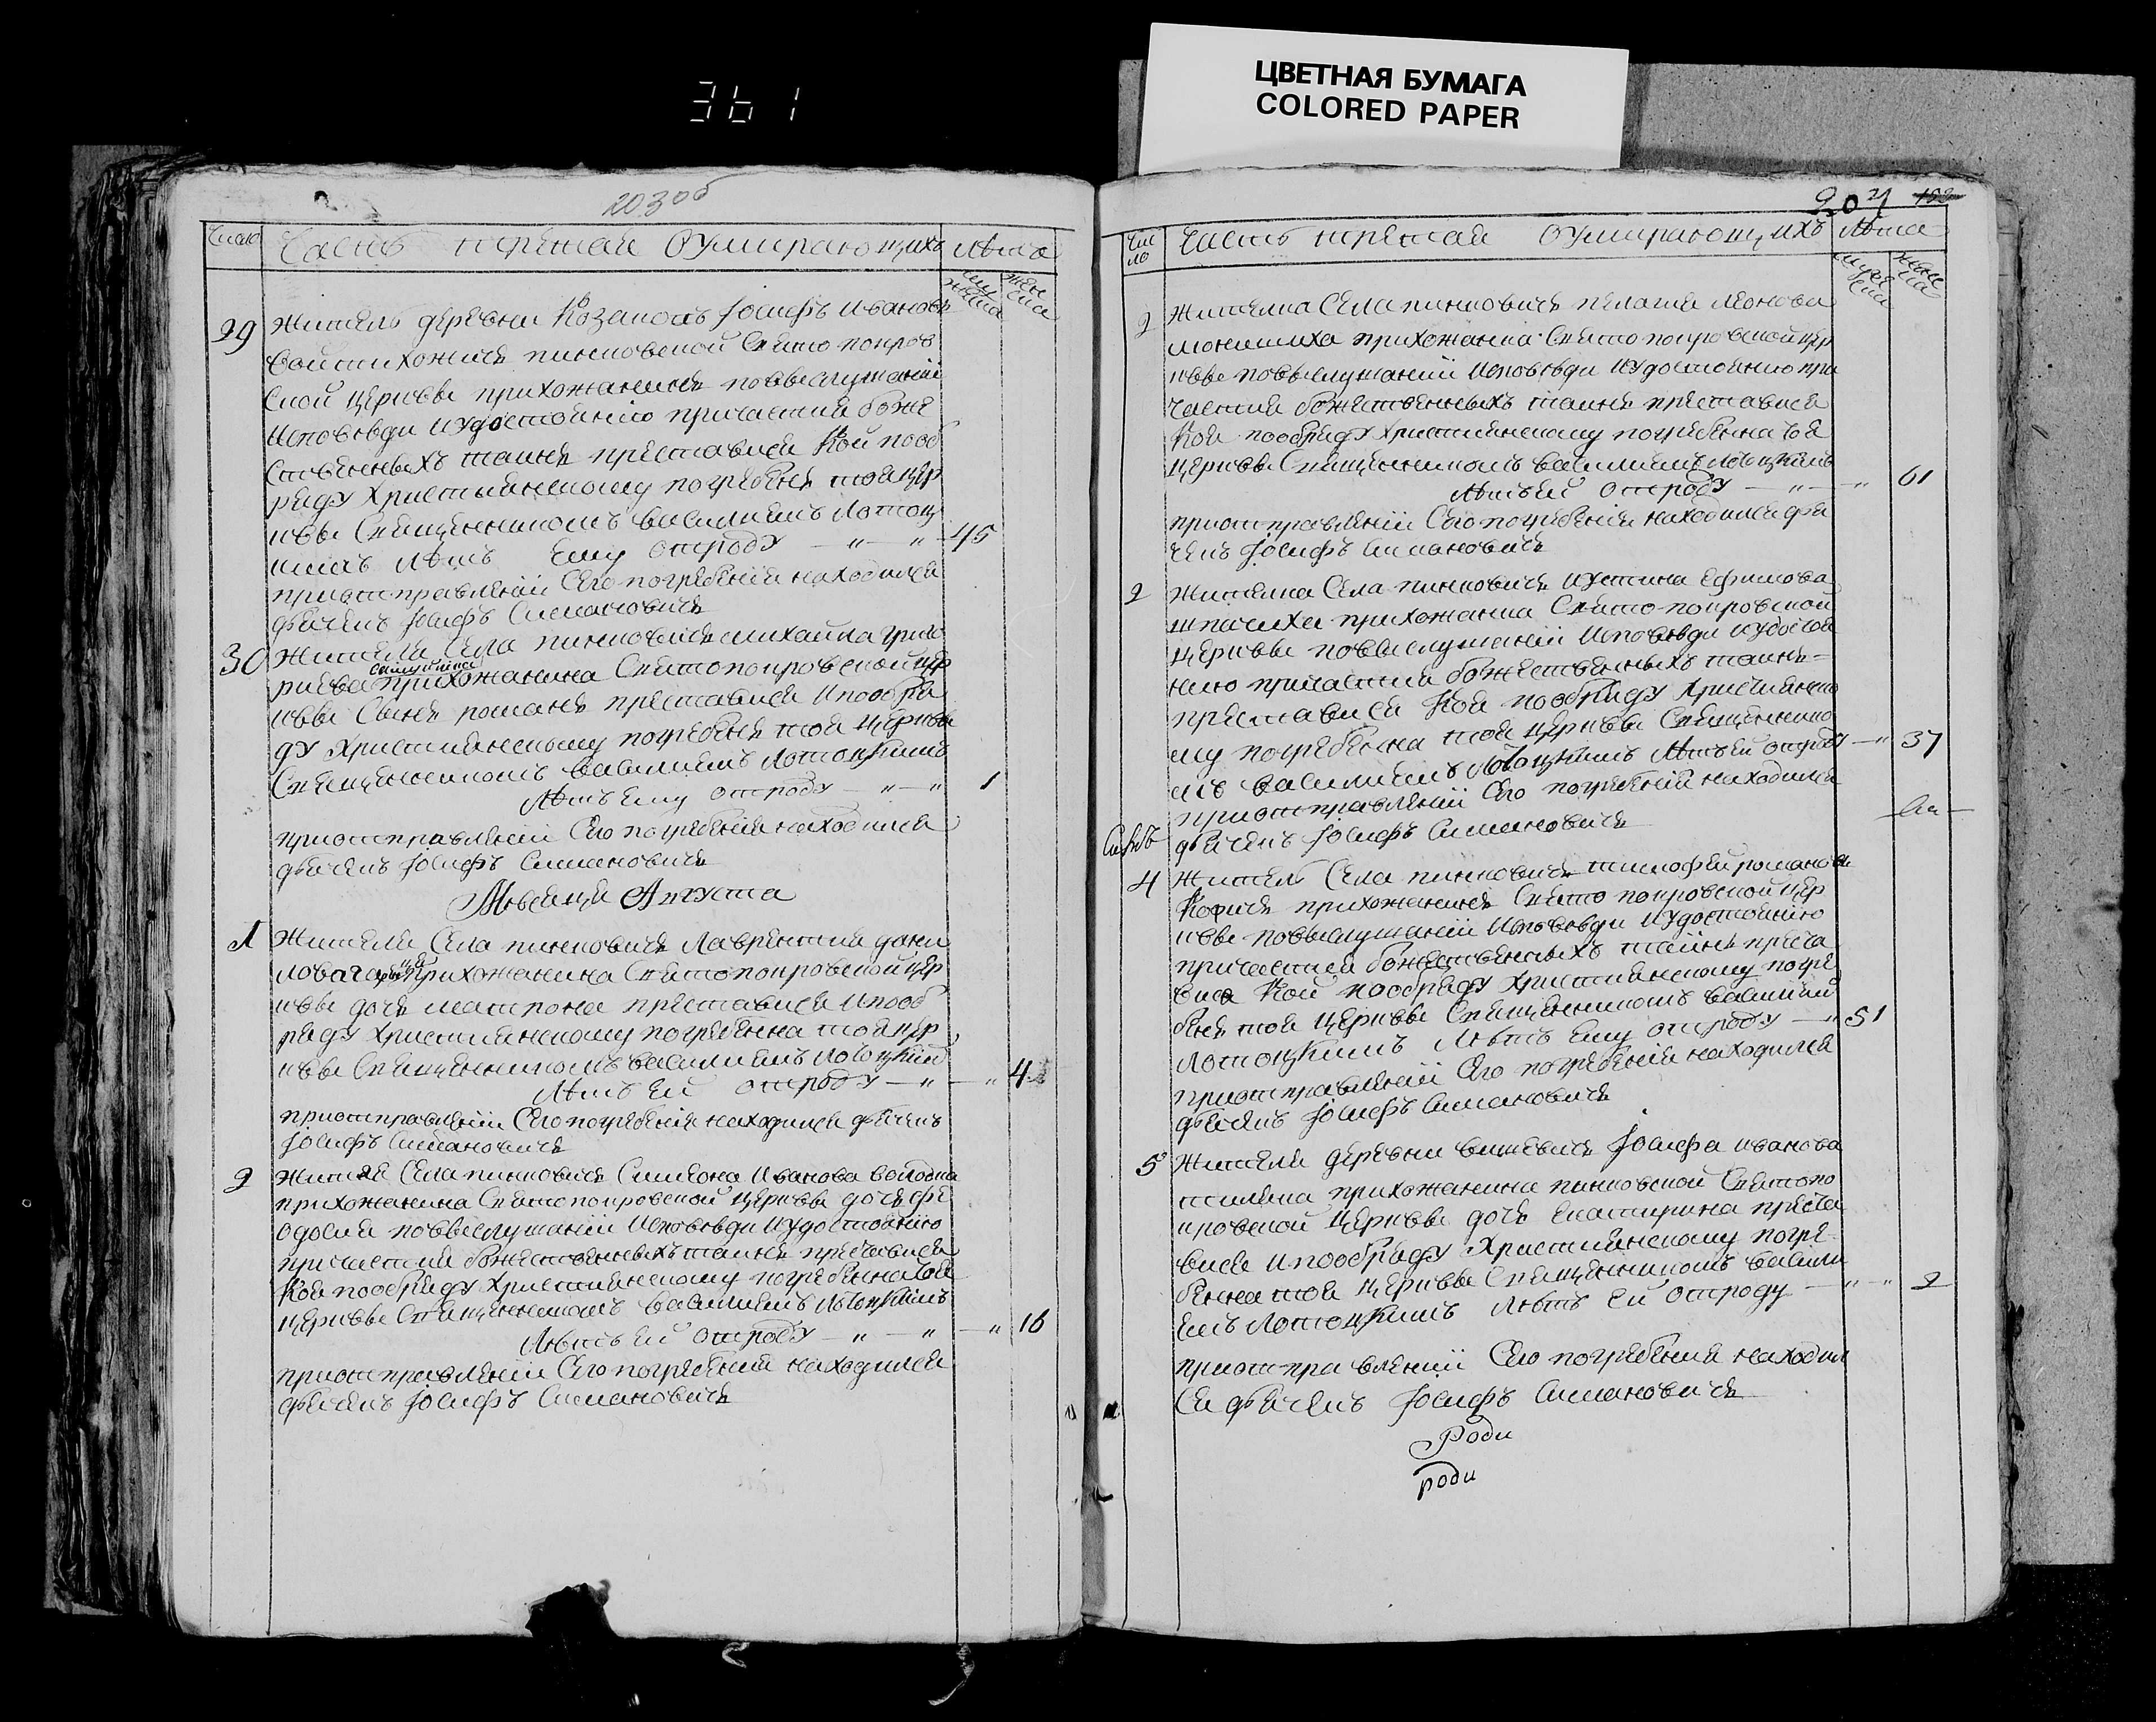 ЦВЕТНАЯ БУМАГА
COLORED PAPER
361
203об
Число Часть третая Оумирающихъ Лѣта
муж жен
29 Житель деревни Козакомъ Іосифъ Ивановъ
пинковской Свято покров
ской церкве прихожанинъ повыслушаніи
Исповѣди и удостоѣнію причастия боже
ственныхъ таинъ преставися Кой пооб
ряду Християнскому погребенъ тоя цер
кве Священникомъ василиемъ Лотоц
кимъ Лѣтъ Ему отроду — " — " 45
приотправленіи Сего погребенія находился
дьячекъ Іосифъ Симановичъ
30 Жителя Села пинковичъ михайла григо
риева прихожанина Святопокровской цер
кве Сынъ романъ преставися и пообря
ду Християнскому погребенъ тоя церкве
Священникомъ василиемъ Лотоцкимъ
Лѣтъ Ему отроду — " — " 1
приотправленіи Сего погребенія находился
дьячекъ Іосифъ Симановичъ
Мѣсяца Августа
1 Жителя Села пинковичъ Лаврентия дани
лова прихожанина Святопокровской цер
кве дочъ матрона преставися и пооб
ряду Християнскому погребенна тоя цер
кве Священникомъ василиемъ Лотоцким
Лѣтъ Ей отроду — " — " 4
приотправленіи Сего погребенія находился дьячекъ
Іосифъ Симановичъ
2 Жителя Села пинковичъ Симеона Иванова
прихожанина Святопокровской церкве дочъ фе
одосия повыслушаніи Исповѣди и удостоѣнію
причастия божественныхъ таинъ преставися
Коя пообряду Християнскому погребенна тоя
церкве Священникомъ василиемъ Лотоцкимъ
Лѣтъ Ей отроду — " — " — " 16
приотправленіи Сего погребенія находился
дьячекъ Іосифъ Симановичъ
204
Чис
ло Часть третая Оумирающихъ Лѣта
2 Жителка Села пинковичъ пелагия леонова
прихожанка Святопокровской цер
кве повыслушаніи Исповѣди и удостоѣнию при
частия божественныхъ таинъ преставися
Коя пообряду Християнскому погребенна тоя
церкве Священникомъ василиемъ Лотоцкимъ
Лѣтъ Ей отроду — " — " 61
приотправленіи Сего погребенія находился дья
чекъ Іосифъ Симановичъ
2 Жителка Села пинковичъ иустина Ефимова
прихожанка Свято-покровской
церкве повыслушаніи Исповѣди и удостоѣ
нию причастия божественныхъ таинъ=
преставися Коя пообряду Християнско
му погребенна тоя церкве Священнико
мъ василиемъ Лотоцкимъ Лѣтъ Ей отроду — " 37
приотправленіи Сего погребенія находился
дьячекъ Іосифъ Симановичъ
4 Житель Села пинковичъ тимофей романовъ
прихожанинъ Свято покровской цер
кве повыслушаніи Исповѣди и удостоѣнію
причастия божественныхъ таинъ преста
вися Кой пообряду Християнскому погре
бенъ тоя церкве Священникомъ василием
Лотоцкимъ Лѣтъ Ему отроду — " 51
приотправленіи Сего погребенія находился
дьячекъ Іосифъ Симановичъ
5 Жителя деревни вишевичъ Іосифа иванова
прихожанина пинковской Святопо
кровской церкве дочъ Екатирина преста
вися и пообряду Християнскому погре-
бенна тоя церкве Священникомъ васили
емъ Лотоцкимъ Лѣтъ Ей отроду — " — " 2
приотправленіи Сего погребения находил
ся дьячекъ Іосифъ Симановичъ
Роди
роди